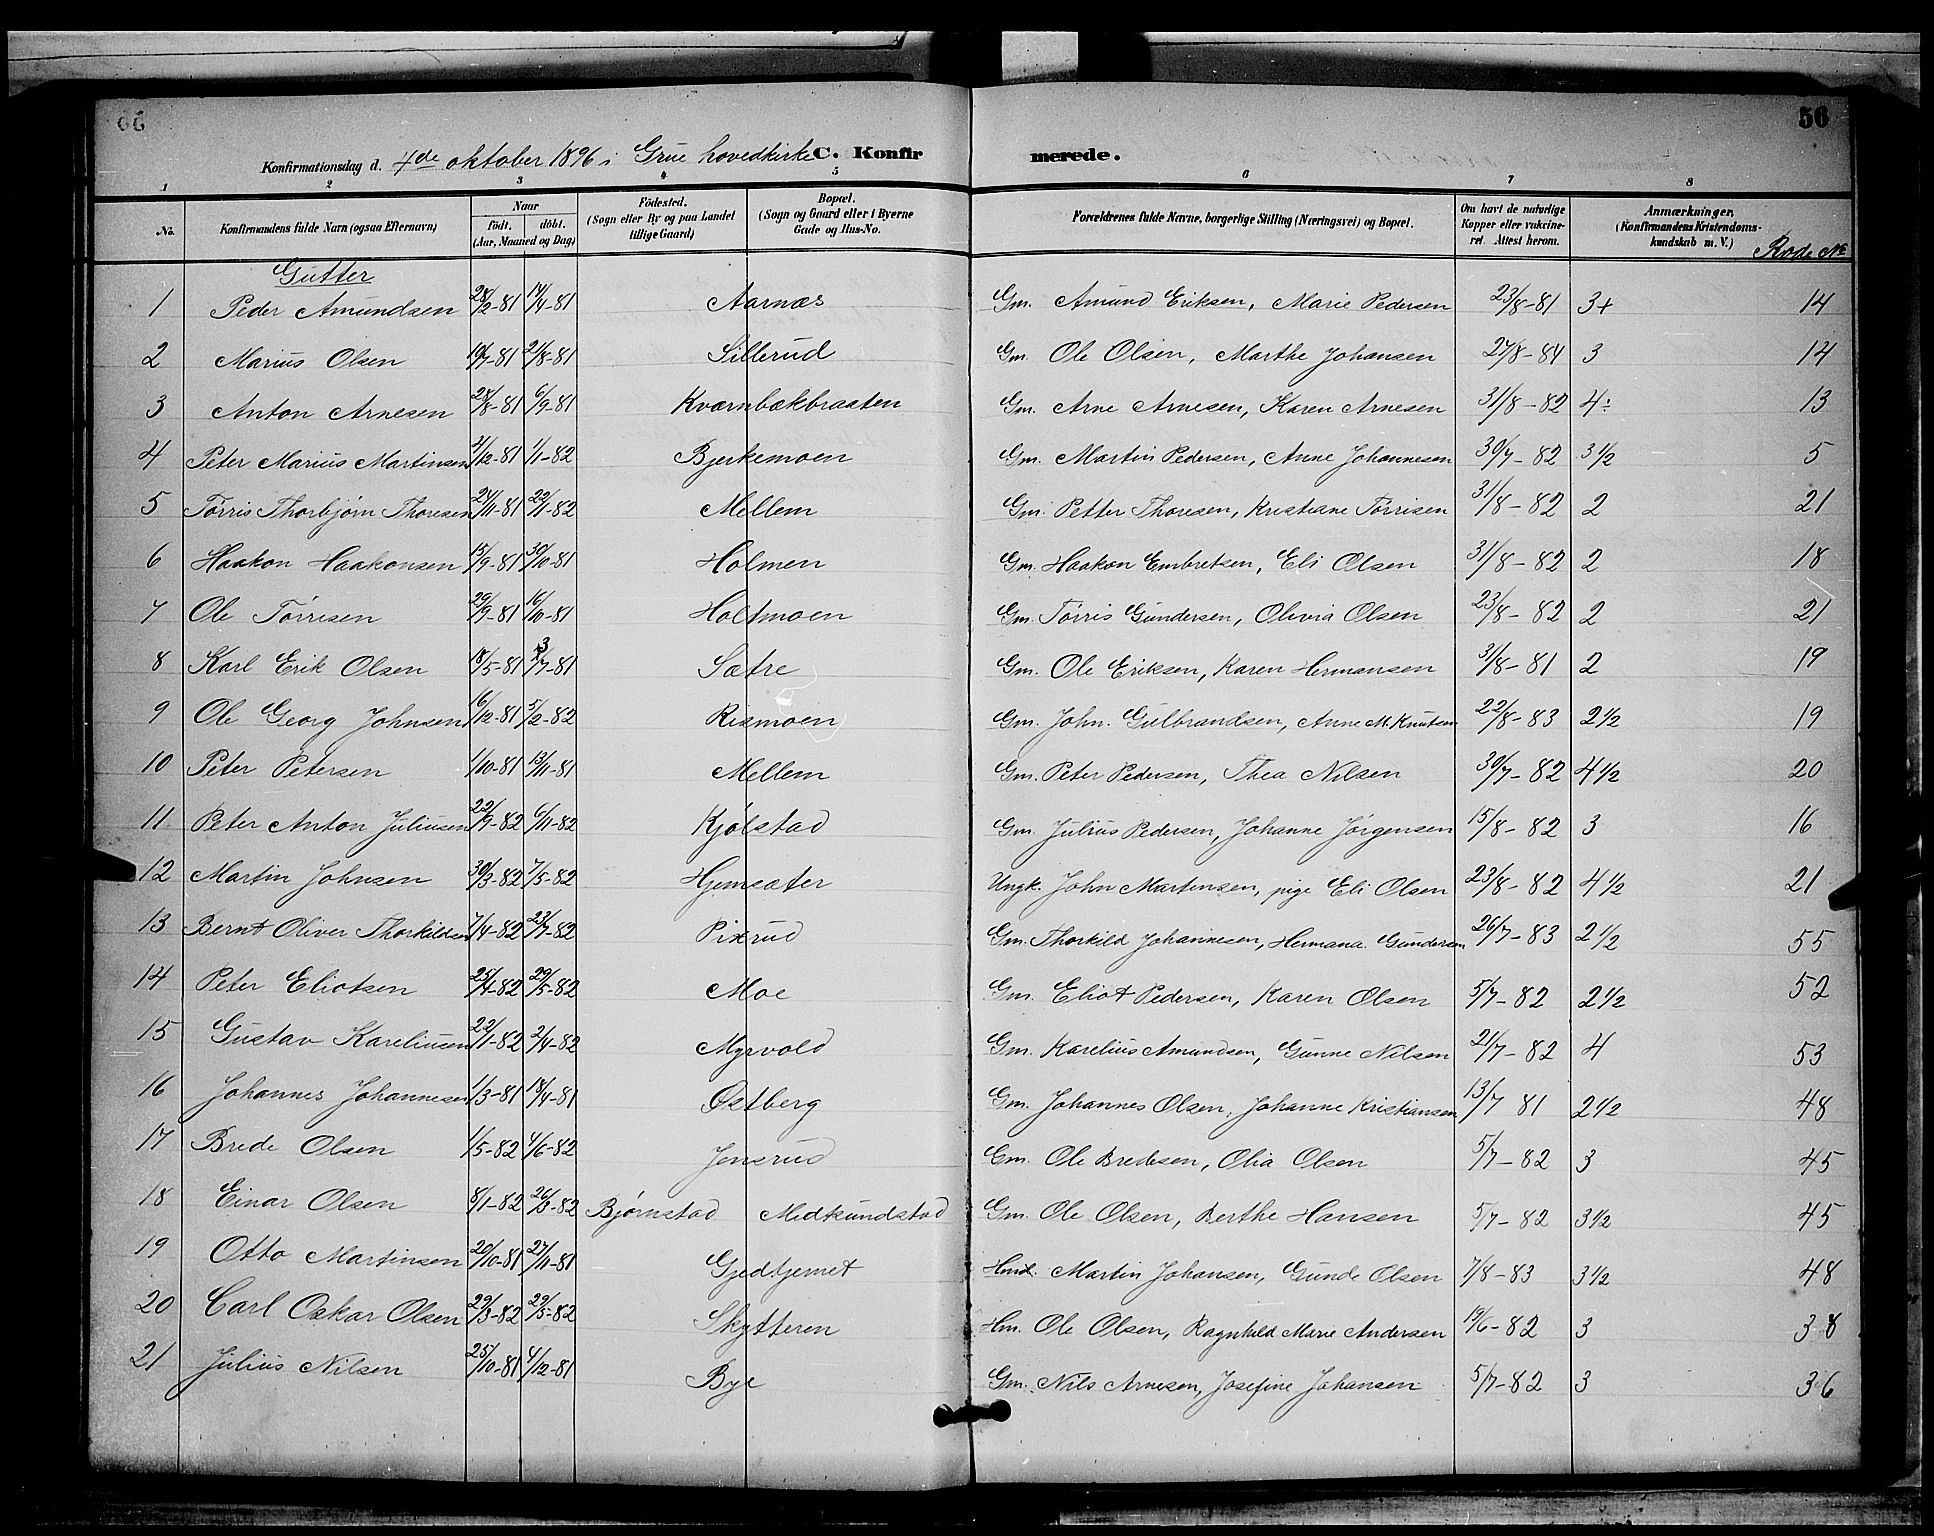 56
Konfirmationsdag d. 4de oktober 1896 i Grue hovedkirke C. Konfirmerede.
1 2 3 4 5 6 7 8
No. Konfirmandens fulde Navn (ogsaa Efternavn) Naar født. døbt. (Aar, Maaned og Dag) Fødested. (Sogn eller By og paa Landet tillige Gaard) Bopæl. (Sogn og Gaard eller i Byerne Gade og Hus-No. Forældrenes fulde Navne, borgerlige Stilling (Næringsvei) og Bopæl. Om havt de naturlige Kopper eller vakcineret. Attest herom. Anmærkninger. (Konfirmandens Kristendomskundskab m. V.) Rode No
Gutter
1 Peder Amundsen 28/2-81 17/4-81 Aarnæs Gm. Amund Eriksen, Marie Pedersen 23/8-81 3+ 14
2 Marius Olsen 19/7-81 21/8-81 Sillerud Gm. Ole Olsen, Marthe Johansen 27/8-84 3 14
3 Anton Arnesen 28/8-81 6/9-81 Kværnbækbraaten Gm. Arne Arnesen, Karen Arnesen 31/8-82 4÷ 13
4 Peter Marius Martinsen /12-81 1/1-82 Bjerkemoen Gm. Martin Pedersen, Anne Johannesen 30/7-82 3 1/2 5
5 Tørris Thorbjørn Thoresen 24/11-81 22/1-82 Mellem Gm. Petter Thoresen, Kristiane Tørrisen 31/8-82 2 21
6 Haakon Haakonsen 15/9-81 30/10-81 Holmen Gm. Haakon Embretsen, Eli Olsen 31/8-82 2 18
7 Ole Tørrisen 29/9-81 16/10-81 Holtmoen Gm. Tørris Gundersen, Olivia Olsen 23/8-82 2 21
8 Karl Erik Olsen 18/5-81 3/7-81 Sætre Gm. Ole Eriksen, Karen Hermansen 31/8-81 2 19
9 Ole Georg Johnsen 16/12-81 5/2-82 Rismoen Gm. John. Gulbrandsen, Anne M. Knutsen 22/8-83 2 1/2 19
10 Peter Petersen 1/10-81 13/11-81 Mellem Gm. Peter Pedersen, Thea Nilsen 30/7-82 4 1/2 20
11 Peter Anton Juliusen 22/9-82 6/11-82 Kjølstad Gm. Julius Pedersen, Johanne Jørgensen 15/8-82 3 16
12 Martin Johnsen 30/3-82 7/5-82 Hjemsæter Ungk. John Martinsen, pige Eli Olsen 23/8-82 4 1/2 21
13 Bernt Oliver Thorkildsen 7/4-82 23/7-82 Pixrud Gm. Thorkild Johannesen, Hermana Gundersen 26/7-83 2 1/2 55
14 Peter Eliotsen 25/4-82 29/5-82 Moe Gm. Eliot Pedersen, Karen Olsen 5/7-82 2 1/2 52
15 Gustav Kareliusen 22/1-82 2/4-82 Myrvold Gm. Karelius Amundsen, Gunne Nilsen 21/7-82 4 53
16 Johannes Johannesen 1/3-81 18/4-81 Østberg Gm. Johannes Olsen, Johanne Kristiansen 13/7 81 2 1/2 48
17 Brede Olsen 1/5-82 4/6-82 Jensrud Gm. Ole Bredesen, Olia Olsen 5/7-82 3 45
18 Einar Olsen 8/1-82 26/3-82 Bjørnstad Midtsundstad Gm. Ole Olsen, Berthe Hansen 5/7-82 3 1/2 45
19 Otto Martinsen 20/10-81 27/11-81 Gjedtjernet Hmd. Martin Johansen, Gunde Olsen 7/8-83 3 1/2 48
20 Carl Oskar Olsen 29/3-82 29/5-82 Skytteren Hm. Ole Olsen, Ragnhild Marie Andersen 19/6-82 3 38
21 Julius Nilsen 25/10-81 4/12-81 Bye Gm. Nils Arnesen, Josefine Johansen 5/7-82 3 36